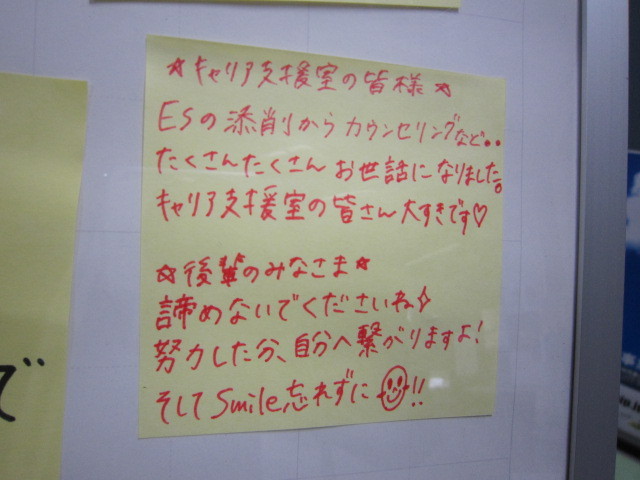 ☆キャリア支援室の皆様☆
ESの添削からカウンセリングなど‥
たくさんたくさんお世話になりました。
キャリア支援室の皆さん大すきです♡
☆後輩のみなさま☆
諦めないでくださいね♪
努力した分、自分へ繋がりますよ!
そしてSmile忘れずに☺!!
で